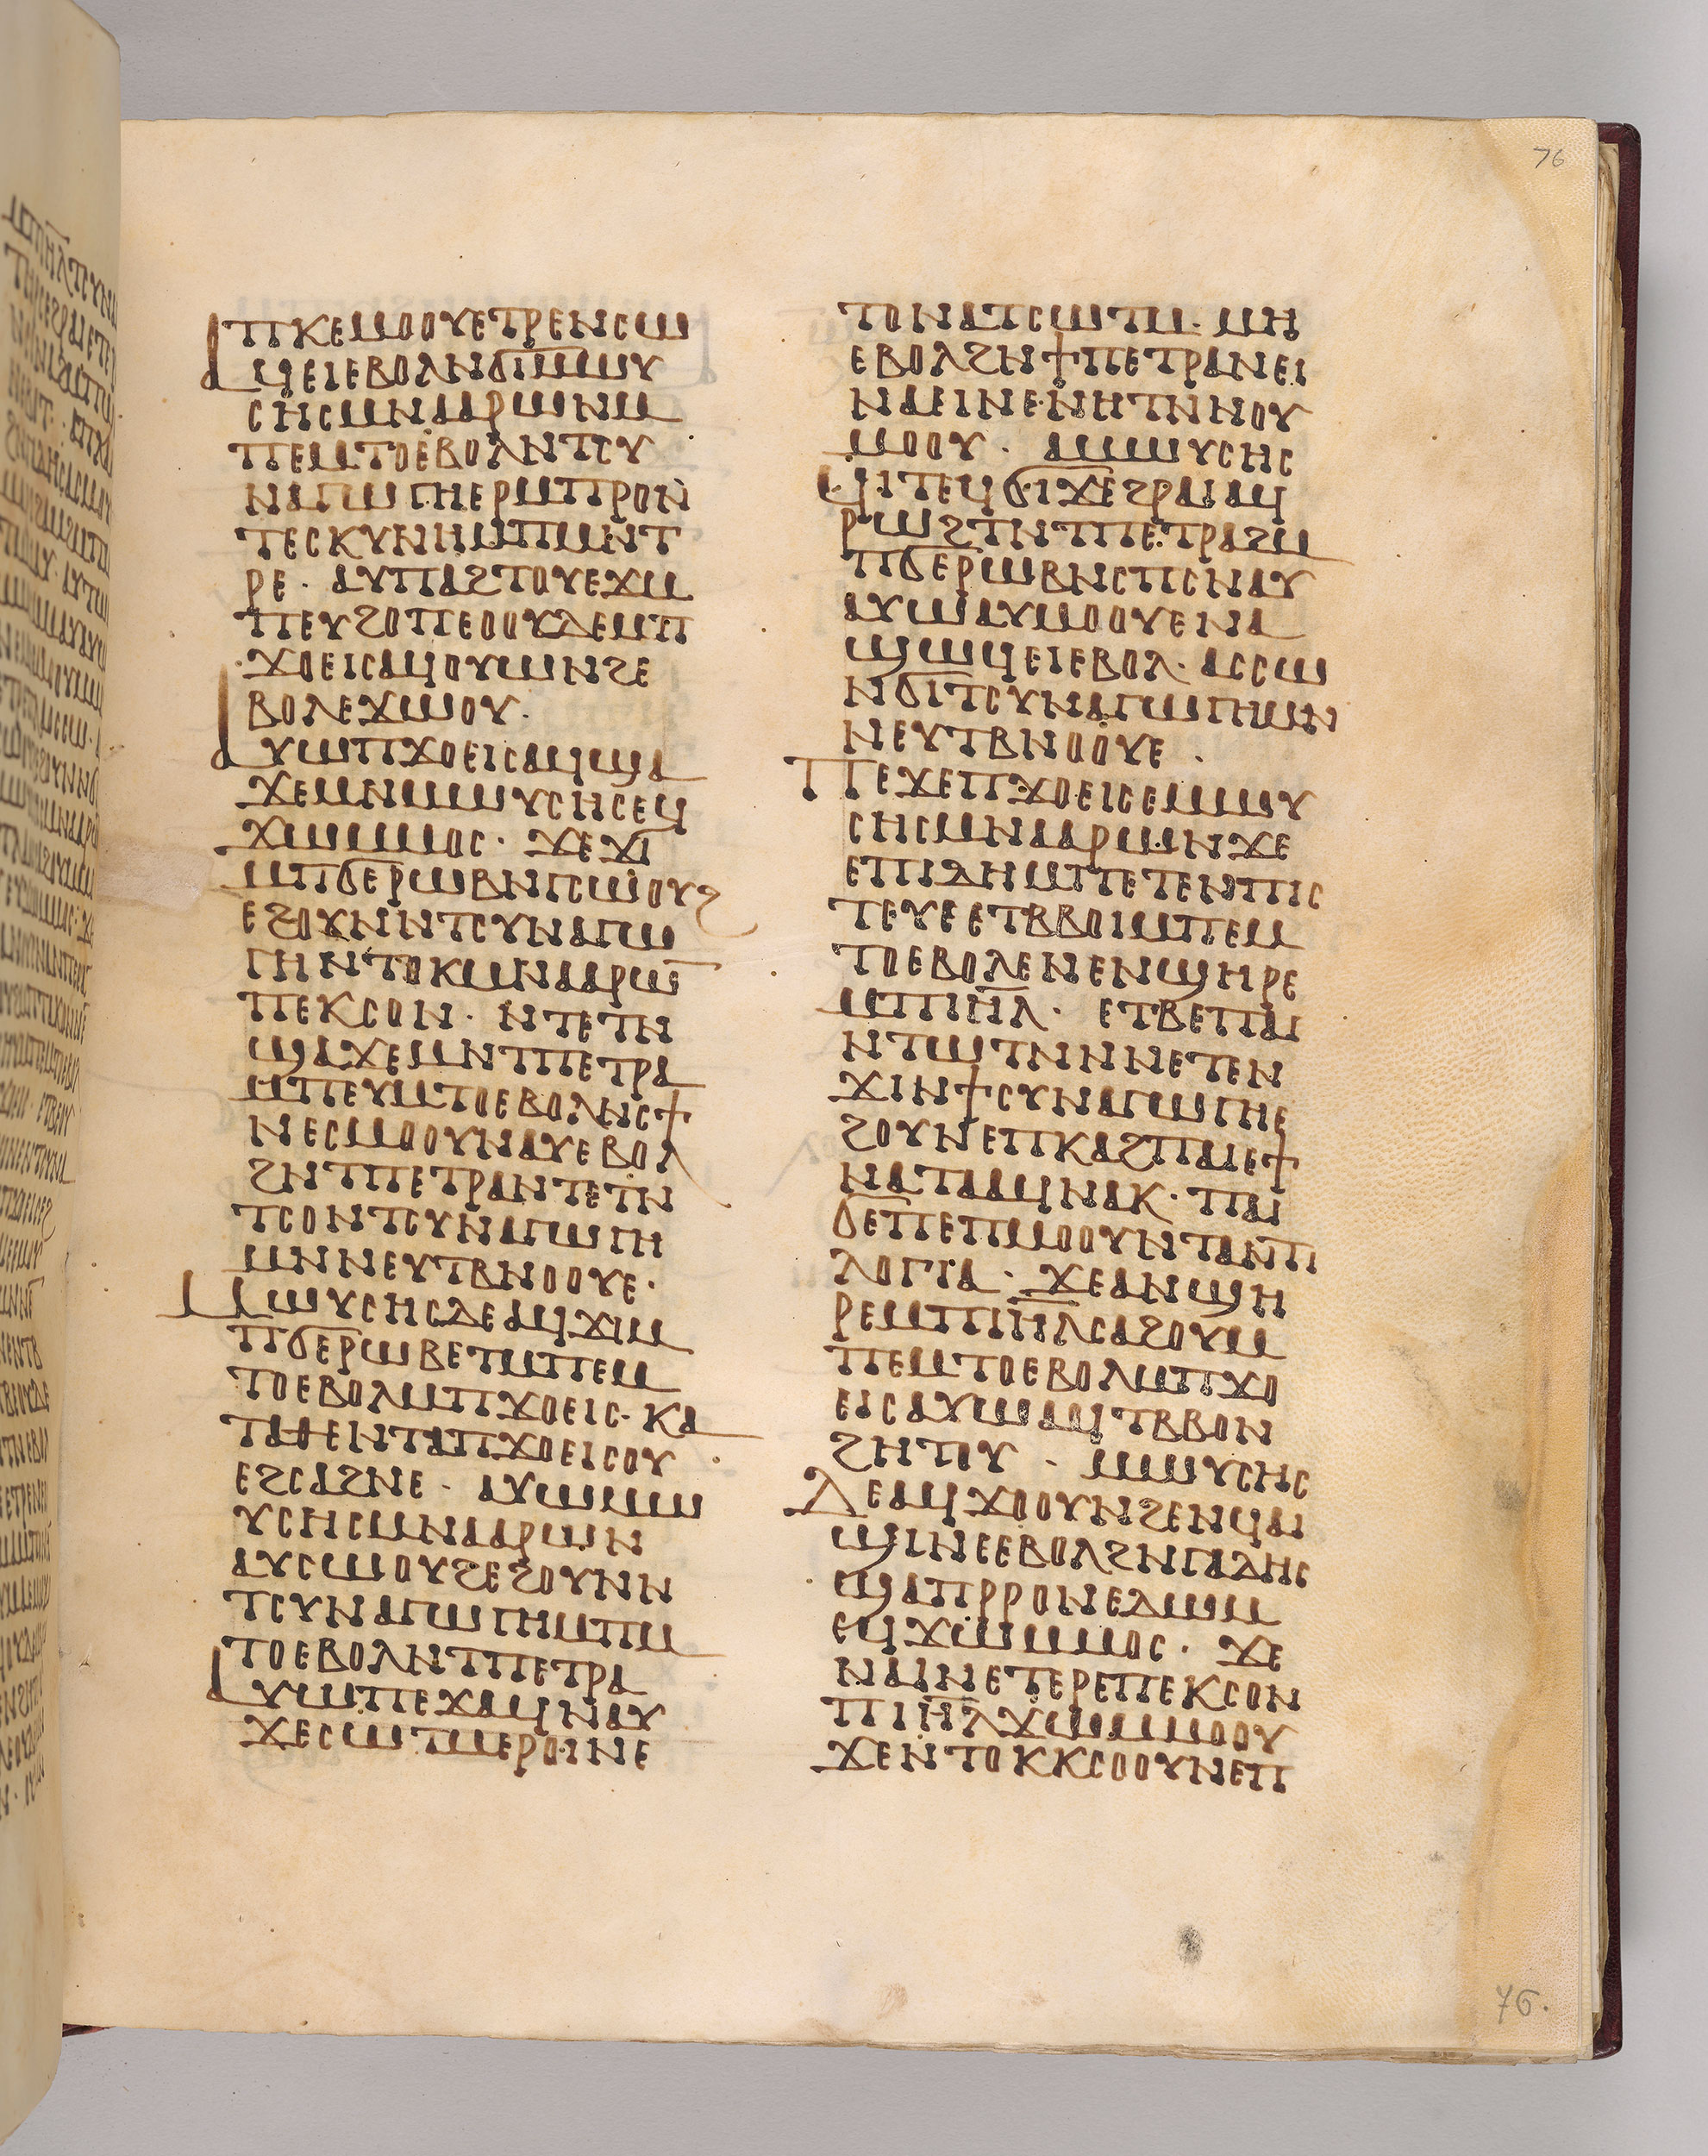 76
ⲡⲕⲉⲙⲟⲟⲩⲉⲧⲣⲉⲛⲥⲱ
ⲁϥⲉⲓⲉⲃⲟⲗⲛϭⲓⲙⲱⲩ
ⲥⲏⲥⲙⲛⲁⲁⲣⲱⲛⲙ
ⲡⲉⲙⲧⲟⲉⲃⲟⲗⲛⲧⲥⲩ
ⲛⲁⲅⲱⲅⲏⲉⲣⲙⲡⲣⲟⲛ
ⲧⲉⲥⲕⲩⲛⲏⲙⲡⲙⲛⲧ
ⲣⲉ · ⲁⲩⲡⲁϩⲧⲟⲩⲉϫⲙ
ⲡⲉⲩϩⲟⲡⲉⲟⲟⲩⲇⲉⲙⲡ
ϫⲟⲉⲓⲥⲁϥⲟⲩⲱⲛϩⲉ
ⲃⲟⲗⲉϫⲱⲟⲩ ·
ⲁⲩⲱⲡϫⲟⲉⲓⲥⲁϥϣⲁ
ϫⲉⲙⲛⲙⲱⲩⲥⲏⲥⲉϥ
ϫⲱⲙⲙⲟⲥ · ϫⲉϫⲓ
ⲙⲡϭⲉⲣⲱⲃⲛⲅⲥⲱⲟⲩϩ
ⲉϩⲟⲩⲛⲛⲧⲥⲩⲛⲁⲅⲱ
ⲅⲏⲛⲧⲟⲕⲙⲛⲁⲁⲣⲱ̅
ⲡⲉⲕⲥⲟⲛ · ⲛⲧⲉⲧⲛ
ϣⲁϫⲉⲙⲛⲧⲡⲉⲧⲣⲁ
ⲙⲡⲉⲩⲙⲧⲟⲉⲃⲟⲗⲛⲥϯ
ⲛⲉⲥⲙⲟⲟⲩⲛⲁⲩⲉⲃⲟⲗ
ϩⲛⲧⲡⲉⲧⲣⲁⲛⲧⲉⲧⲛ
ⲧⲥⲟⲛⲧⲥⲩⲛⲁⲅⲱⲅⲏ
ⲙⲛⲛⲉⲩⲧⲃⲛⲟⲟⲩⲉ ·
ⲙⲱⲩⲥⲏⲥⲇⲉⲁϥϫⲓⲙ
ⲡϭⲉⲣⲱⲃⲉⲧⲙⲡⲉⲙ
ⲧⲟⲉⲃⲟⲗⲙⲡϫⲟⲉⲓⲥ · ⲕⲁ
ⲧⲁⲑⲉⲛⲧⲁⲡϫⲟⲉⲓⲥⲟⲩ
ⲉϩⲥⲁϩⲛⲉ · ⲁⲩⲱⲙⲱ
ⲩⲥⲏⲥⲙⲛⲁⲁⲣⲱⲛ
ⲁⲩⲥⲱⲟⲩϩⲉϩⲟⲩⲛⲛ
ⲧⲥⲩⲛⲁⲅⲱⲅⲏⲙⲡⲙ
ⲧⲟⲉⲃⲟⲗⲛⲧⲡⲉⲧⲣⲁ
ⲁⲩⲱⲡⲉϫⲁϥⲛⲁⲩ
ϫⲉⲥⲱⲧⲙⲉⲣⲟⲓⲛⲉ
ⲧⲟⲛⲁⲧⲥⲱⲧⲙ · ⲙⲏ
ⲉⲃⲟⲗϩⲛϯⲡⲉⲧⲣⲁⲛⲉⲓ
ⲛⲁⲉⲓⲛⲉⲛⲏⲧⲛⲛⲟⲩ
ⲙⲟⲟⲩ · ⲁⲙⲱⲩⲥⲏⲥ
ϥⲓⲧⲉϥϭⲓϫⲉϩⲣⲁⲓⲁϥ
ⲣⲱϩⲧⲛⲧⲡⲉⲧⲣⲁϩⲙ
ⲡϭⲉⲣⲱⲃⲛⲥⲡⲥⲛⲁⲩ
ⲁⲩⲱⲁⲩⲙⲟⲟⲩⲉⲛⲁ
ϣⲱϥⲉⲓⲉⲃⲟⲗ · ⲁⲥⲥⲱ
ⲛϭⲓⲧⲥⲩⲛⲁⲅⲱⲅⲏⲙⲛ
ⲛⲉⲩⲧⲃⲛⲟⲟⲩⲉ ·
ⲡⲉϫⲉⲡϫⲟⲉⲓⲥⲉⲙⲙⲱⲩ
ⲥⲏⲥⲙⲛⲁⲁⲣⲱⲛϫⲉ
ⲉⲡⲓⲇⲏⲙⲡⲉⲧⲉⲛⲡⲓⲥ
ⲧⲉⲩⲉⲉⲧⲃⲃⲟⲓⲙⲡⲉⲙ
ⲧⲟⲉⲃⲟⲗⲉⲛⲉⲛϣⲏⲣⲉ
ⲙⲡⲓⲏ̅ⲗ · ⲉⲧⲃⲉⲡⲁⲓ
ⲛⲧⲱⲧⲛⲛⲛⲉⲧⲉⲛ
ϫⲓⲛϯⲥⲩⲛⲁⲅⲱⲅⲏⲉ
ϩⲟⲩⲛⲉⲡⲕⲁϩⲡⲁⲓⲉϯ
ⲛⲁⲧⲁⲁϥⲛⲁⲕ · ⲡⲁⲓ
ϭⲉⲡⲉⲡⲙⲟⲟⲩⲛⲧⲁⲛⲧⲓ
ⲗⲟⲅⲓⲁ · ϫⲉⲁⲛϣⲏ
ⲣⲉⲙⲡⲓⲏ̅ⲗⲥⲁϩⲟⲩⲙ
ⲡⲉⲙⲧⲟⲉⲃⲟⲗⲙⲡϫⲟ
ⲉⲓⲥⲁⲩⲱⲁϥⲧⲃⲃⲟⲛ
ϩⲏⲧⲟⲩ · ⲁⲙⲱⲩⲥⲏⲥ
ⲇⲉⲁϥϫⲟⲟⲩⲛϩⲉⲛϥⲁⲓ
ϣⲓⲛⲉⲉⲃⲟⲗϩⲛⲅⲁⲇⲏⲥ
ϣⲁⲡⲣⲣⲟⲛⲉⲇⲱⲙ
ⲉϥϫⲱⲙⲙⲟⲥ · ϫⲉ
ⲛⲁⲓⲛⲉⲧⲉⲣⲉⲡⲉⲕⲥⲟⲛ
ⲡⲓⲏ̅ⲗϫⲱⲙⲙⲟⲟⲩ
ϫⲉⲛⲧⲟⲕⲕⲥⲟⲟⲩⲛⲉⲡ
76.